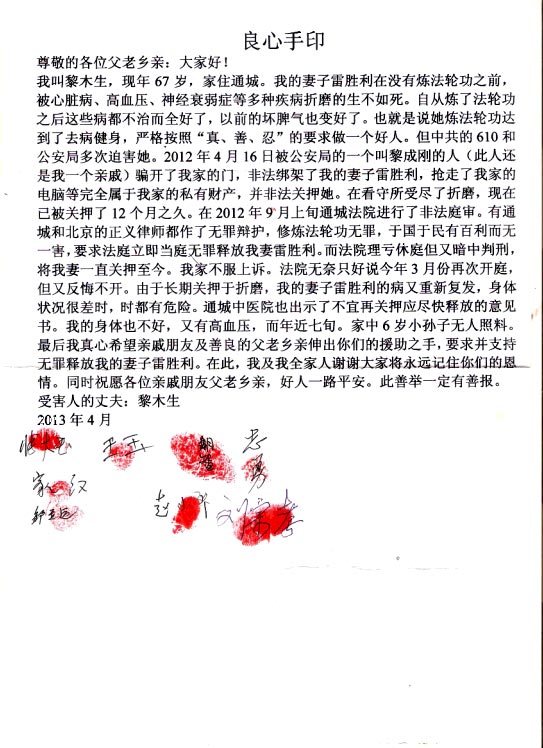 良心手印
尊敬的各位父老乡亲：大家好！
我叫黎木生，现年 67 岁，家住通城。我的妻子雷胜利在没有炼法轮功之前，
被心脏病、高血压、神经衰弱症等多种疾病折磨的生不如死。自从炼了法轮功
之后这些病都不治而全好了，以前的坏脾气也变好了。也就是说她炼法轮功达
到了去病健身，严格按照“真、善、忍”的要求做一个好人。但中共的 610 和
公安局多次迫害她。2012 年 4 月 16 日被公安局的一个叫黎成刚的人（此人还
是我一个亲戚）骗开了我家的门，非法绑架了我的妻子雷胜利，抢走了我家的
电脑等完全属于我家的私有财产，并非法关押她。在看守所受尽了折磨，现在
已被关押了 12 个月之久。在 2012 年 9 月上旬通城法院进行了非法庭审。有通
城和北京的正义律师都作了无罪辩护，修炼法轮功无罪，于国于民有百利而无
一害，要求法庭立即当庭无罪释放我妻雷胜利。而法院理亏休庭但又暗中判刑，
将我妻一直关押至今。我家不服上诉。法院无奈只好说今年 3 月份再次开庭，
但又反悔不开。由于长期关押于折磨，我的妻子雷胜利的病又重新复发，身体
状况很差时，时都有危险。通城中医院也出示了不宜再关押应尽快释放的意见
书。我的身体也不好，又有高血压，而年近七旬。家中 6 岁小孙子无人照料。
最后我真心希望亲戚朋友及善良的父老乡亲伸出你们的援助之手，要求并支持
无罪释放我的妻子雷胜利。在此，我及我全家人谢谢大家将永远记住你们的恩
情。同时祝愿各位亲戚朋友父老乡亲，好人一路平安。此善举一定有善报。
受害人的丈夫：黎木生
2013 年 4 月